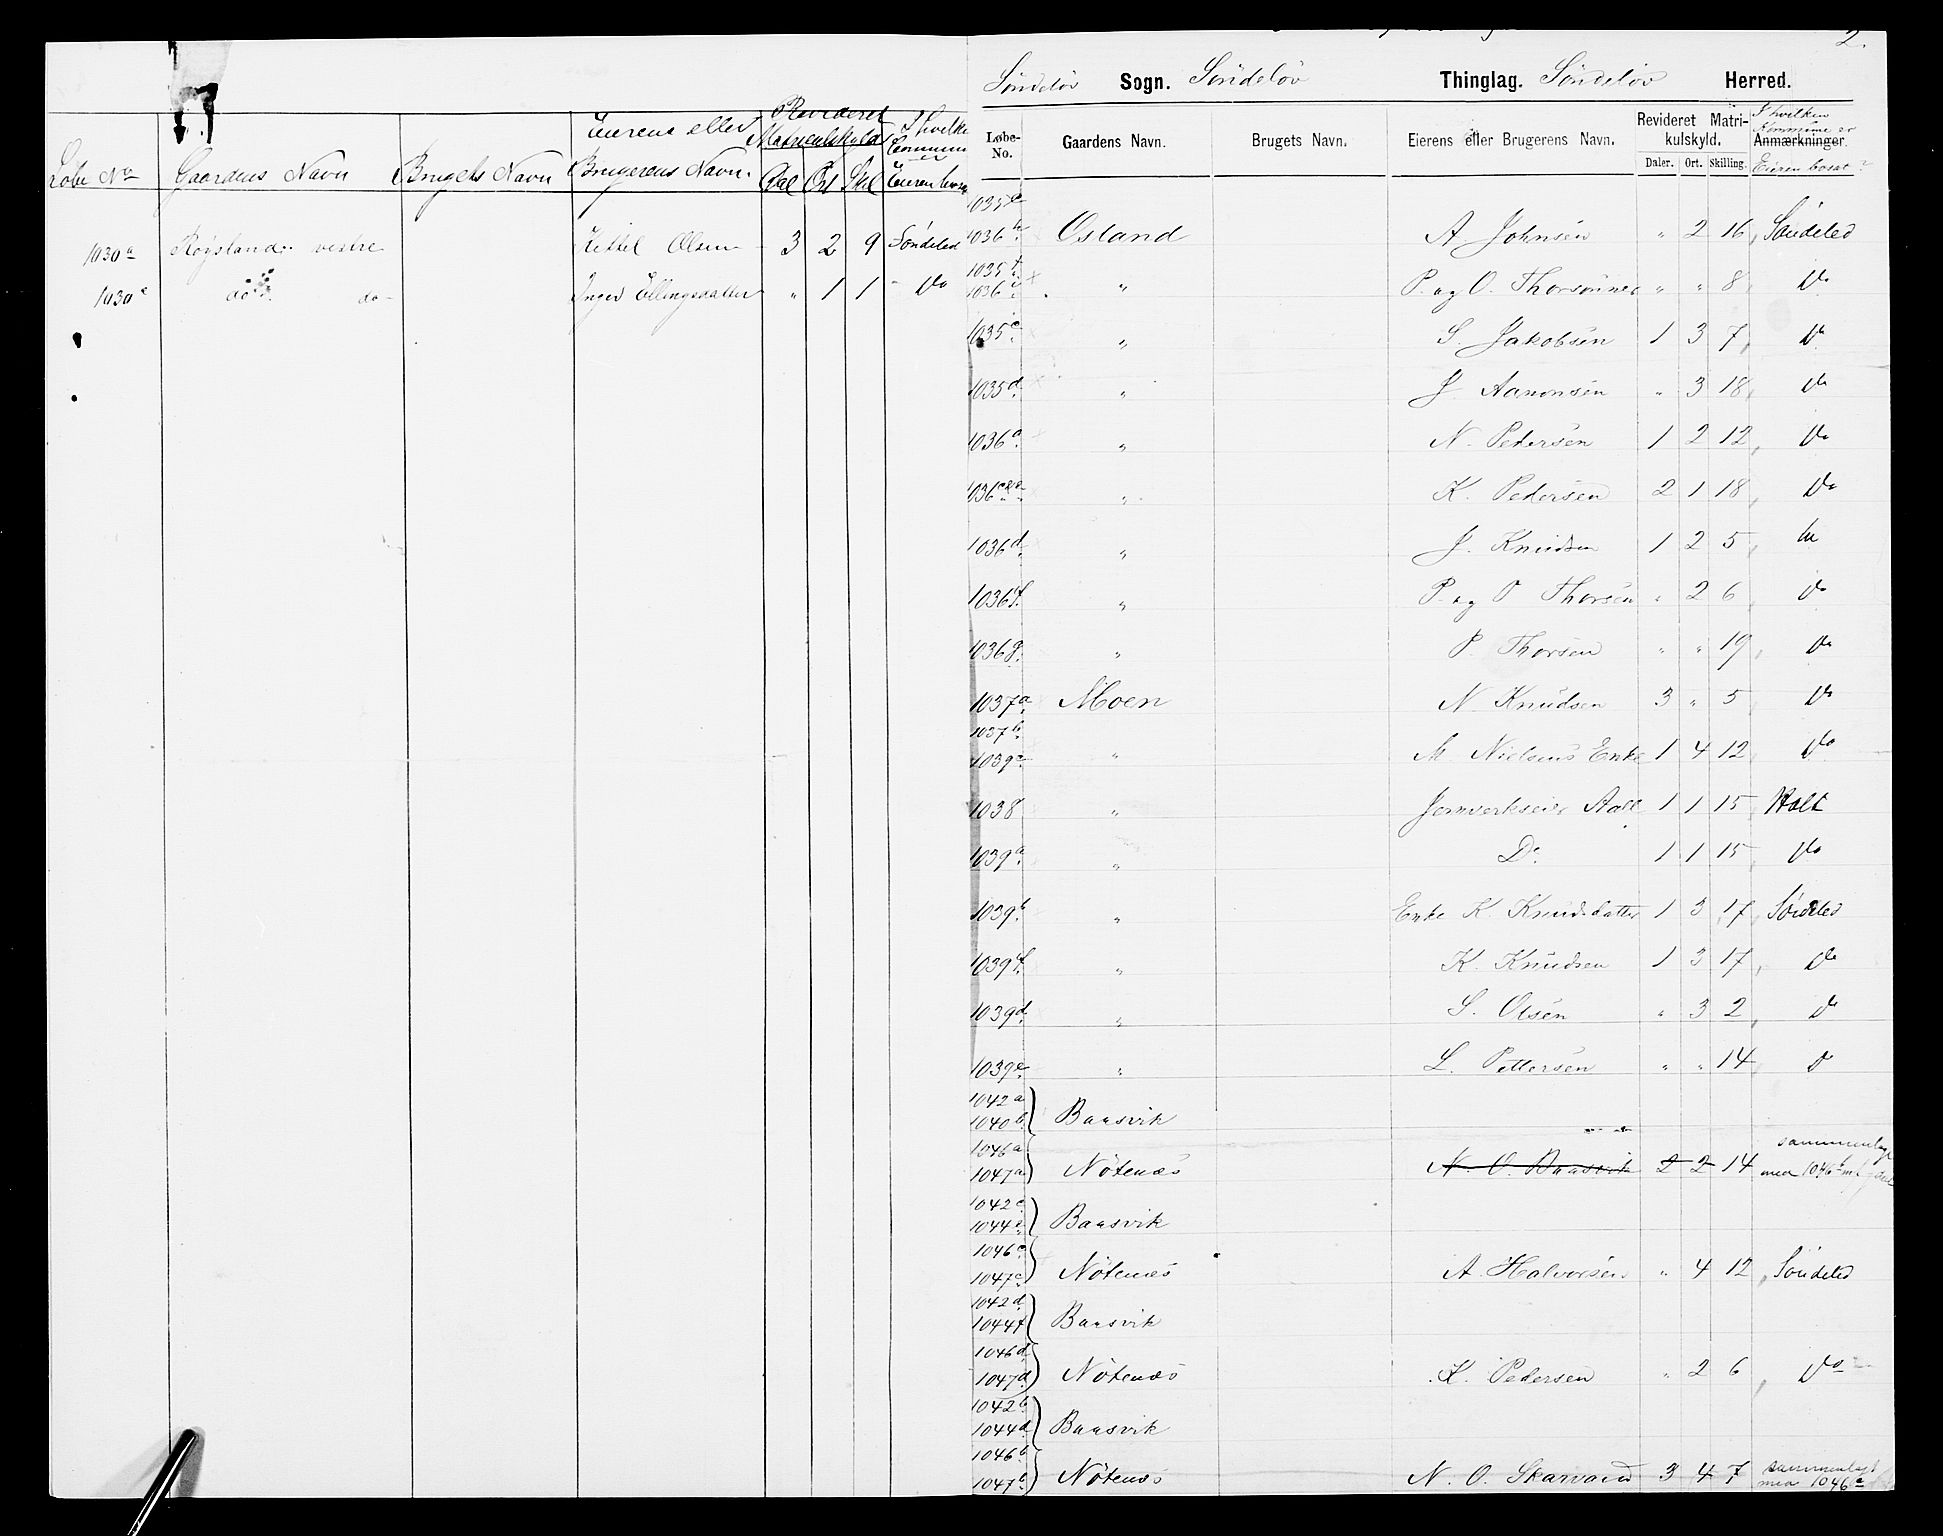 Løbe No Gaardens Navn Brugets Navn Eierens eller Brugerens Navn. Revideret Matriculskyld Dal Ort Skil I hvilke Commun er Eieren bosa
1030a Røysland vestre Kittel Olsen 3 2 9 Søndeled
1030c do do Inger Ellingsdatter " 1 1 Do
2.
Søndeløv Sogn. Søndeløv Thinglag. Søndeløv Herred.
Løbe-No. Gaardens Navn. Brugets Navn. Eierens eller Brugerens Navn. Revideret Matrikulskyld. Daler. Ort. Skilling. Anmærkninger. I hvilken Kommune er Eieren bosat?
1035e
1036h Osland A Johnsen " 2 16 Søndeled
1035f
1036i " P. og O. Thorsønner " " 8 Do
1035c " S. Jakobsen 1 3 7 Do
1035d " J Aanonsen " 3 18 Do
1036a " N. Pedersen 1 2 12 Do
1036 " K. Pedersen 2 1 18 Do
1036d " J. Knudsen 1 2 5 Do
1036f " P. og O Thorsen " 2 6 Do
1036g " P. Thorsen " " 19 Do
1037a Moen N Knudsen 3 " 5 Do
1037b
1039c " M Nielsens Enke 1 4 12 Do
1038 " Jernverkseier Aall 1 1 15 Holt
1039a " Do 1 1 15 Do
1039b " Enke K. Knudsdatter 1 3 17 Søndeled
1039f " K. Knudsen 1 3 17 Do
1039d " S. Olsen " 3 2 Do
1039e " L. Pettersen " " 14 Do
1042a
1040b Baasvik
1046a
1047a Nötenæs N. O. Baasvik 2 2 14 sammenlagt med 1046b
1042c
1044e Baasvik
1046c
1047c Nötenæs A. Halvorsen " 4 12 Søndeled
1042d
1044f Baasvik
1046d
1047d Nötenæs K. Pedersen " 2 6 Do
1042b
1044d Baasvik
1046b
1047b Nötenæs N. O. Skarvand 3 4 7 sammenlagt med 1046a